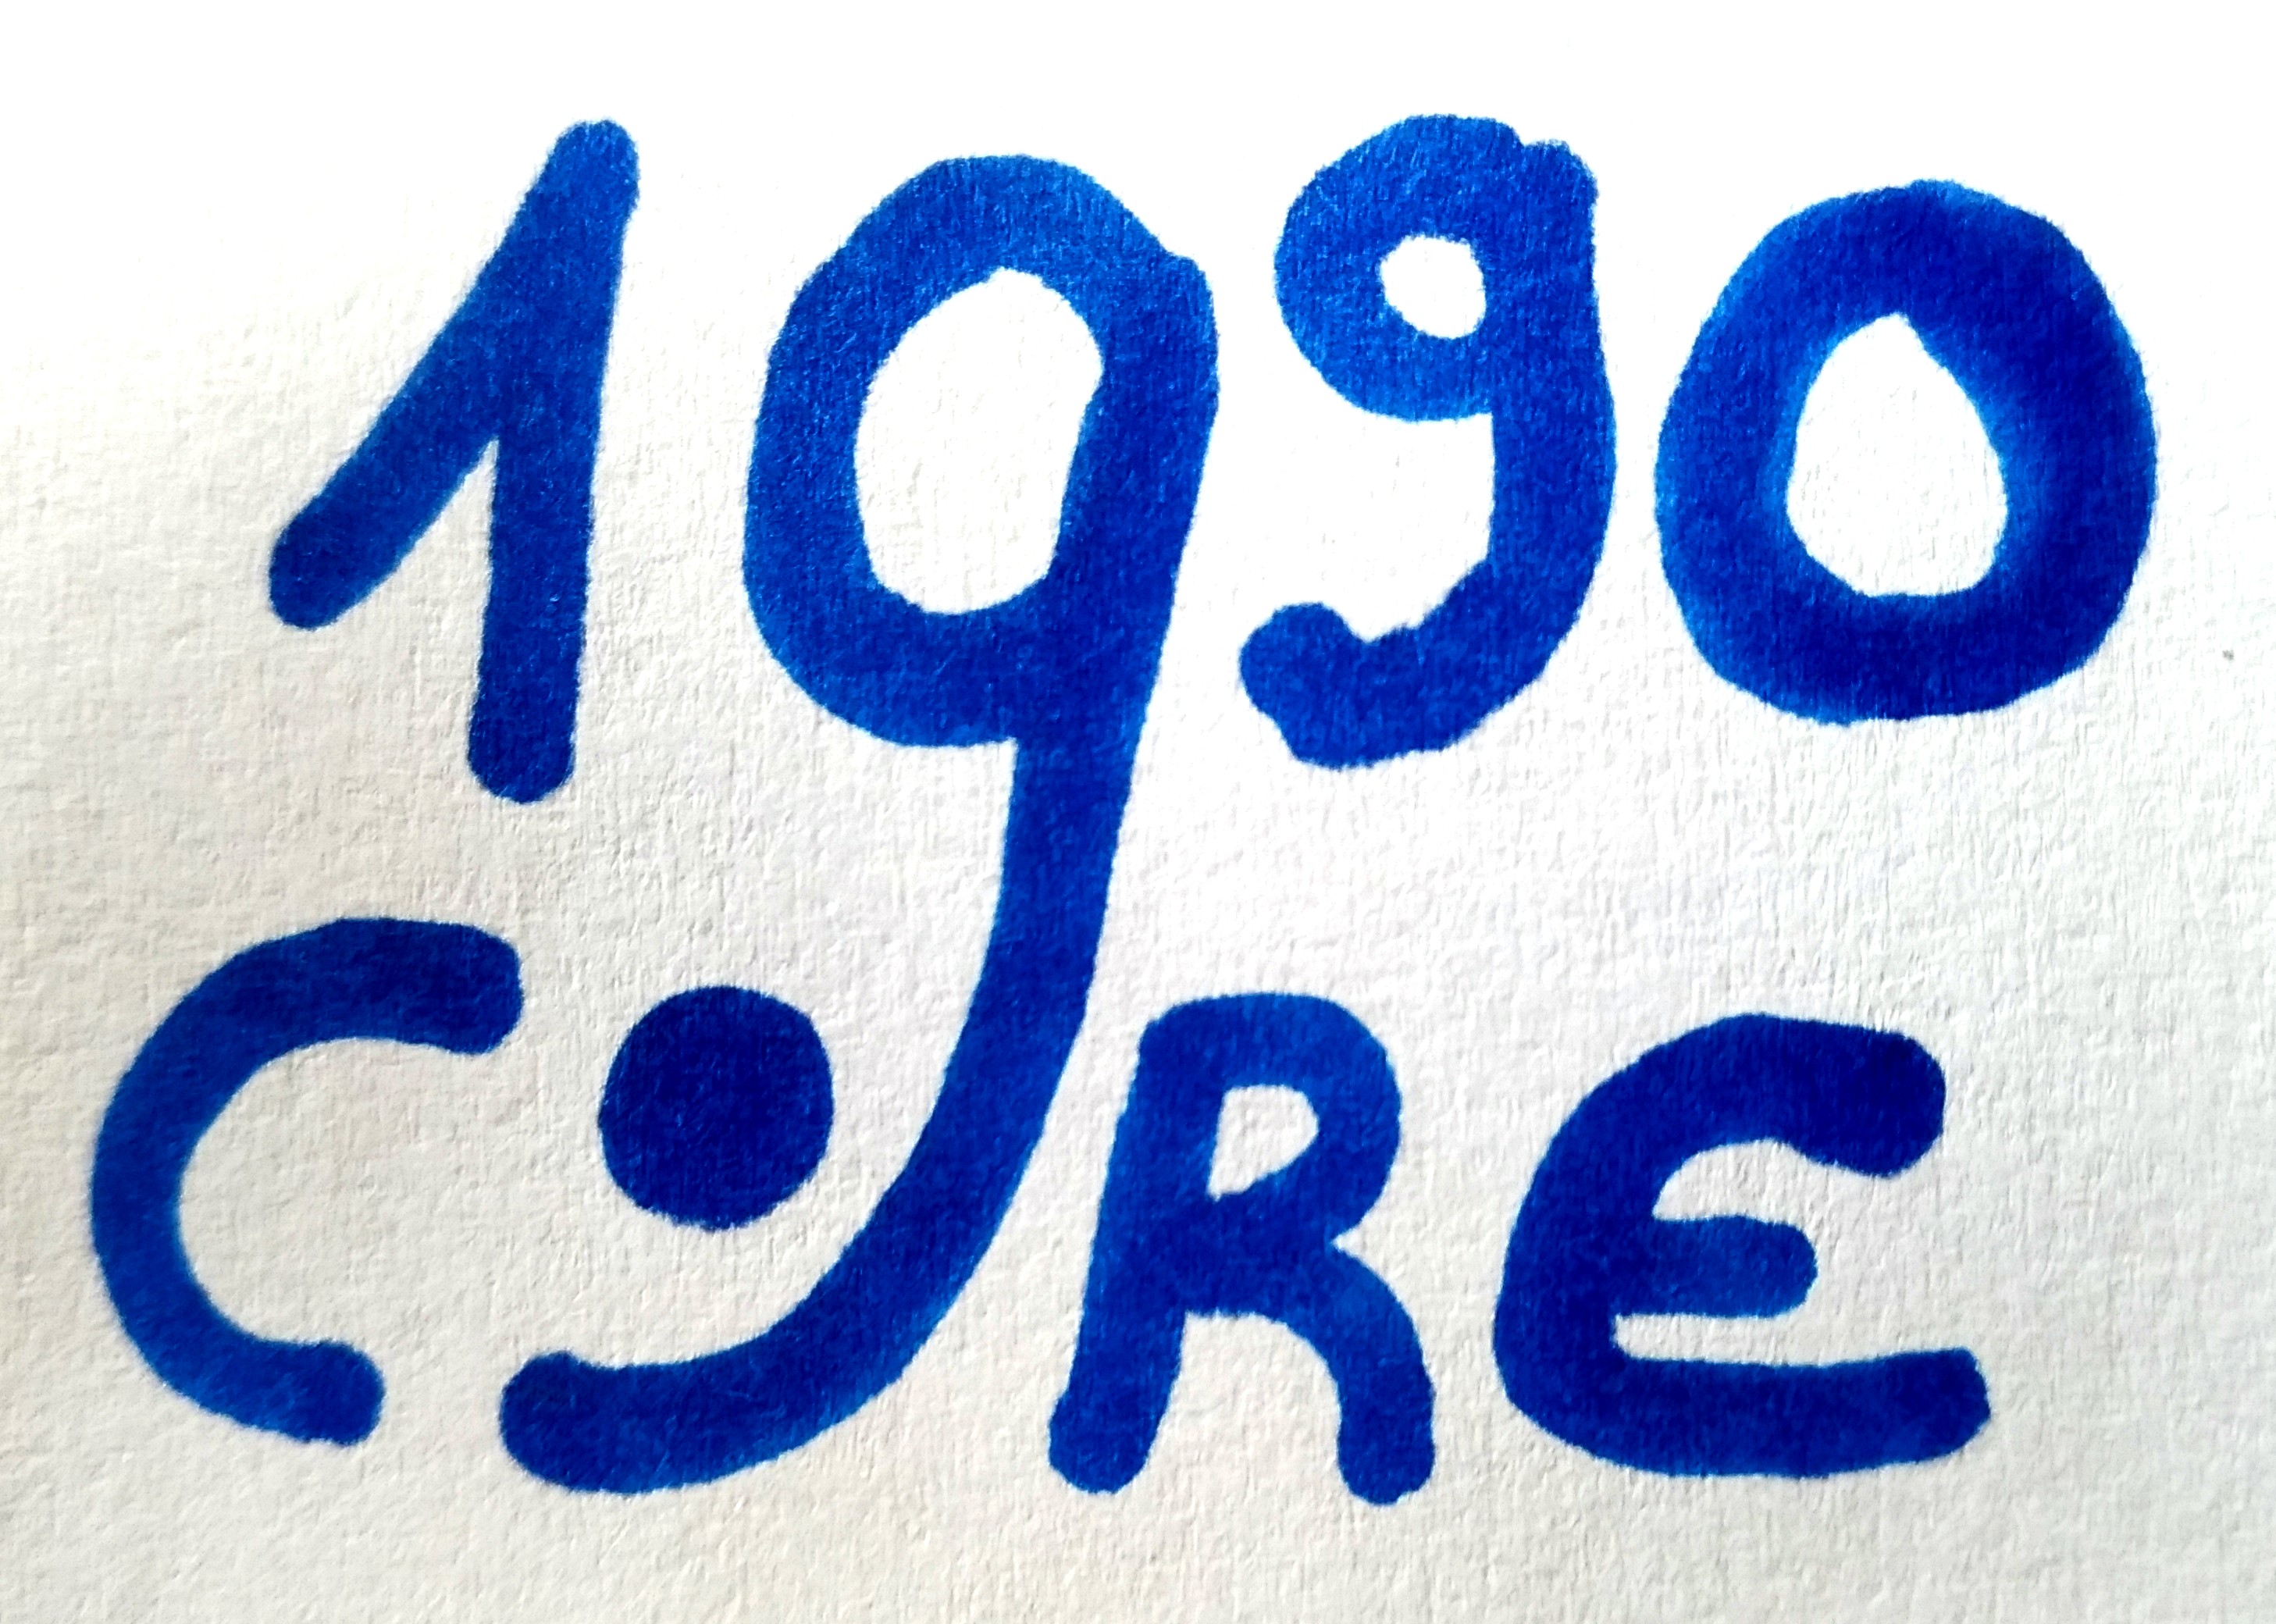 1990
CORE